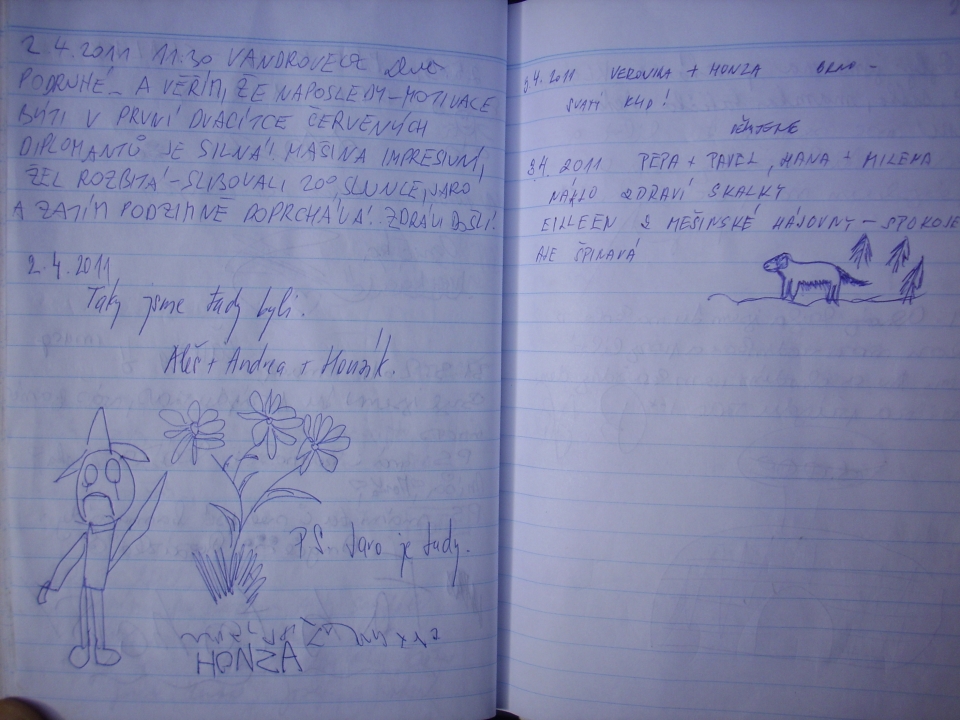 2.4.2011 11:30 VANDROVEC
PODRUHÉ - A VĚŘÍM, ŽE NAPOSLEDY - MOTIVACE
BÝTI V PRVNÍ DVACÍTCE ČERVENÝCH
DIPLOMANTŮ JE SILNÁ! MAŠINA IMPRESIVNÍ,
ŽEL ROZBITÁ - SLIBOVALI 20°, SLUNCE, JARO
A ZATÍM PODZIMNĚ POPRCHÁVÁ! ZDRÁVI DOŠLI!
2.4.2011
Taky jsme tady byli.
Aleš + Andrea + Honzík.
P.S. Jaro je tady.
HONSA
3.4.2011 VERONIKA + HONZA BRNO -
3.4. 2011 PEPA + PAVEL, HANA + MILENA
NÁKLO ZDRAVÍ SKALKY
EILLEEN Z MEŠINSKÉ HÁJOVNY - SPOKOJE
ALE ŠPINAVÁ